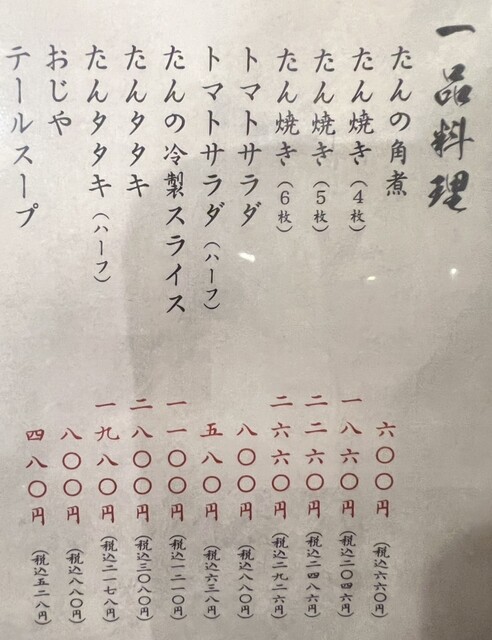 一品料理
たんの角煮 六〇〇円 (税込六六〇円)
たん焼き(4枚) 一八六〇円 (税込二〇四六円)
たん焼き(5枚) 二二六〇円 (税込二四八六円)
たん焼き(6枚) 二六六〇円 (税込二九二六円)
トマトサラダ 八〇〇円 (税込八八〇円)
トマトサラダ(ハーフ) 五八〇円 (税込六三八円)
たんの冷製スライス 一一〇〇円 (税込一二一〇円)
たんタタキ 二八〇〇円 (税込三〇八〇円)
たんタタキ(ハーフ) 一九八〇円 (税込二一七八円)
おじや 八〇〇円 (税込八八〇円)
テールスープ 四八〇円 (税込五二八円)